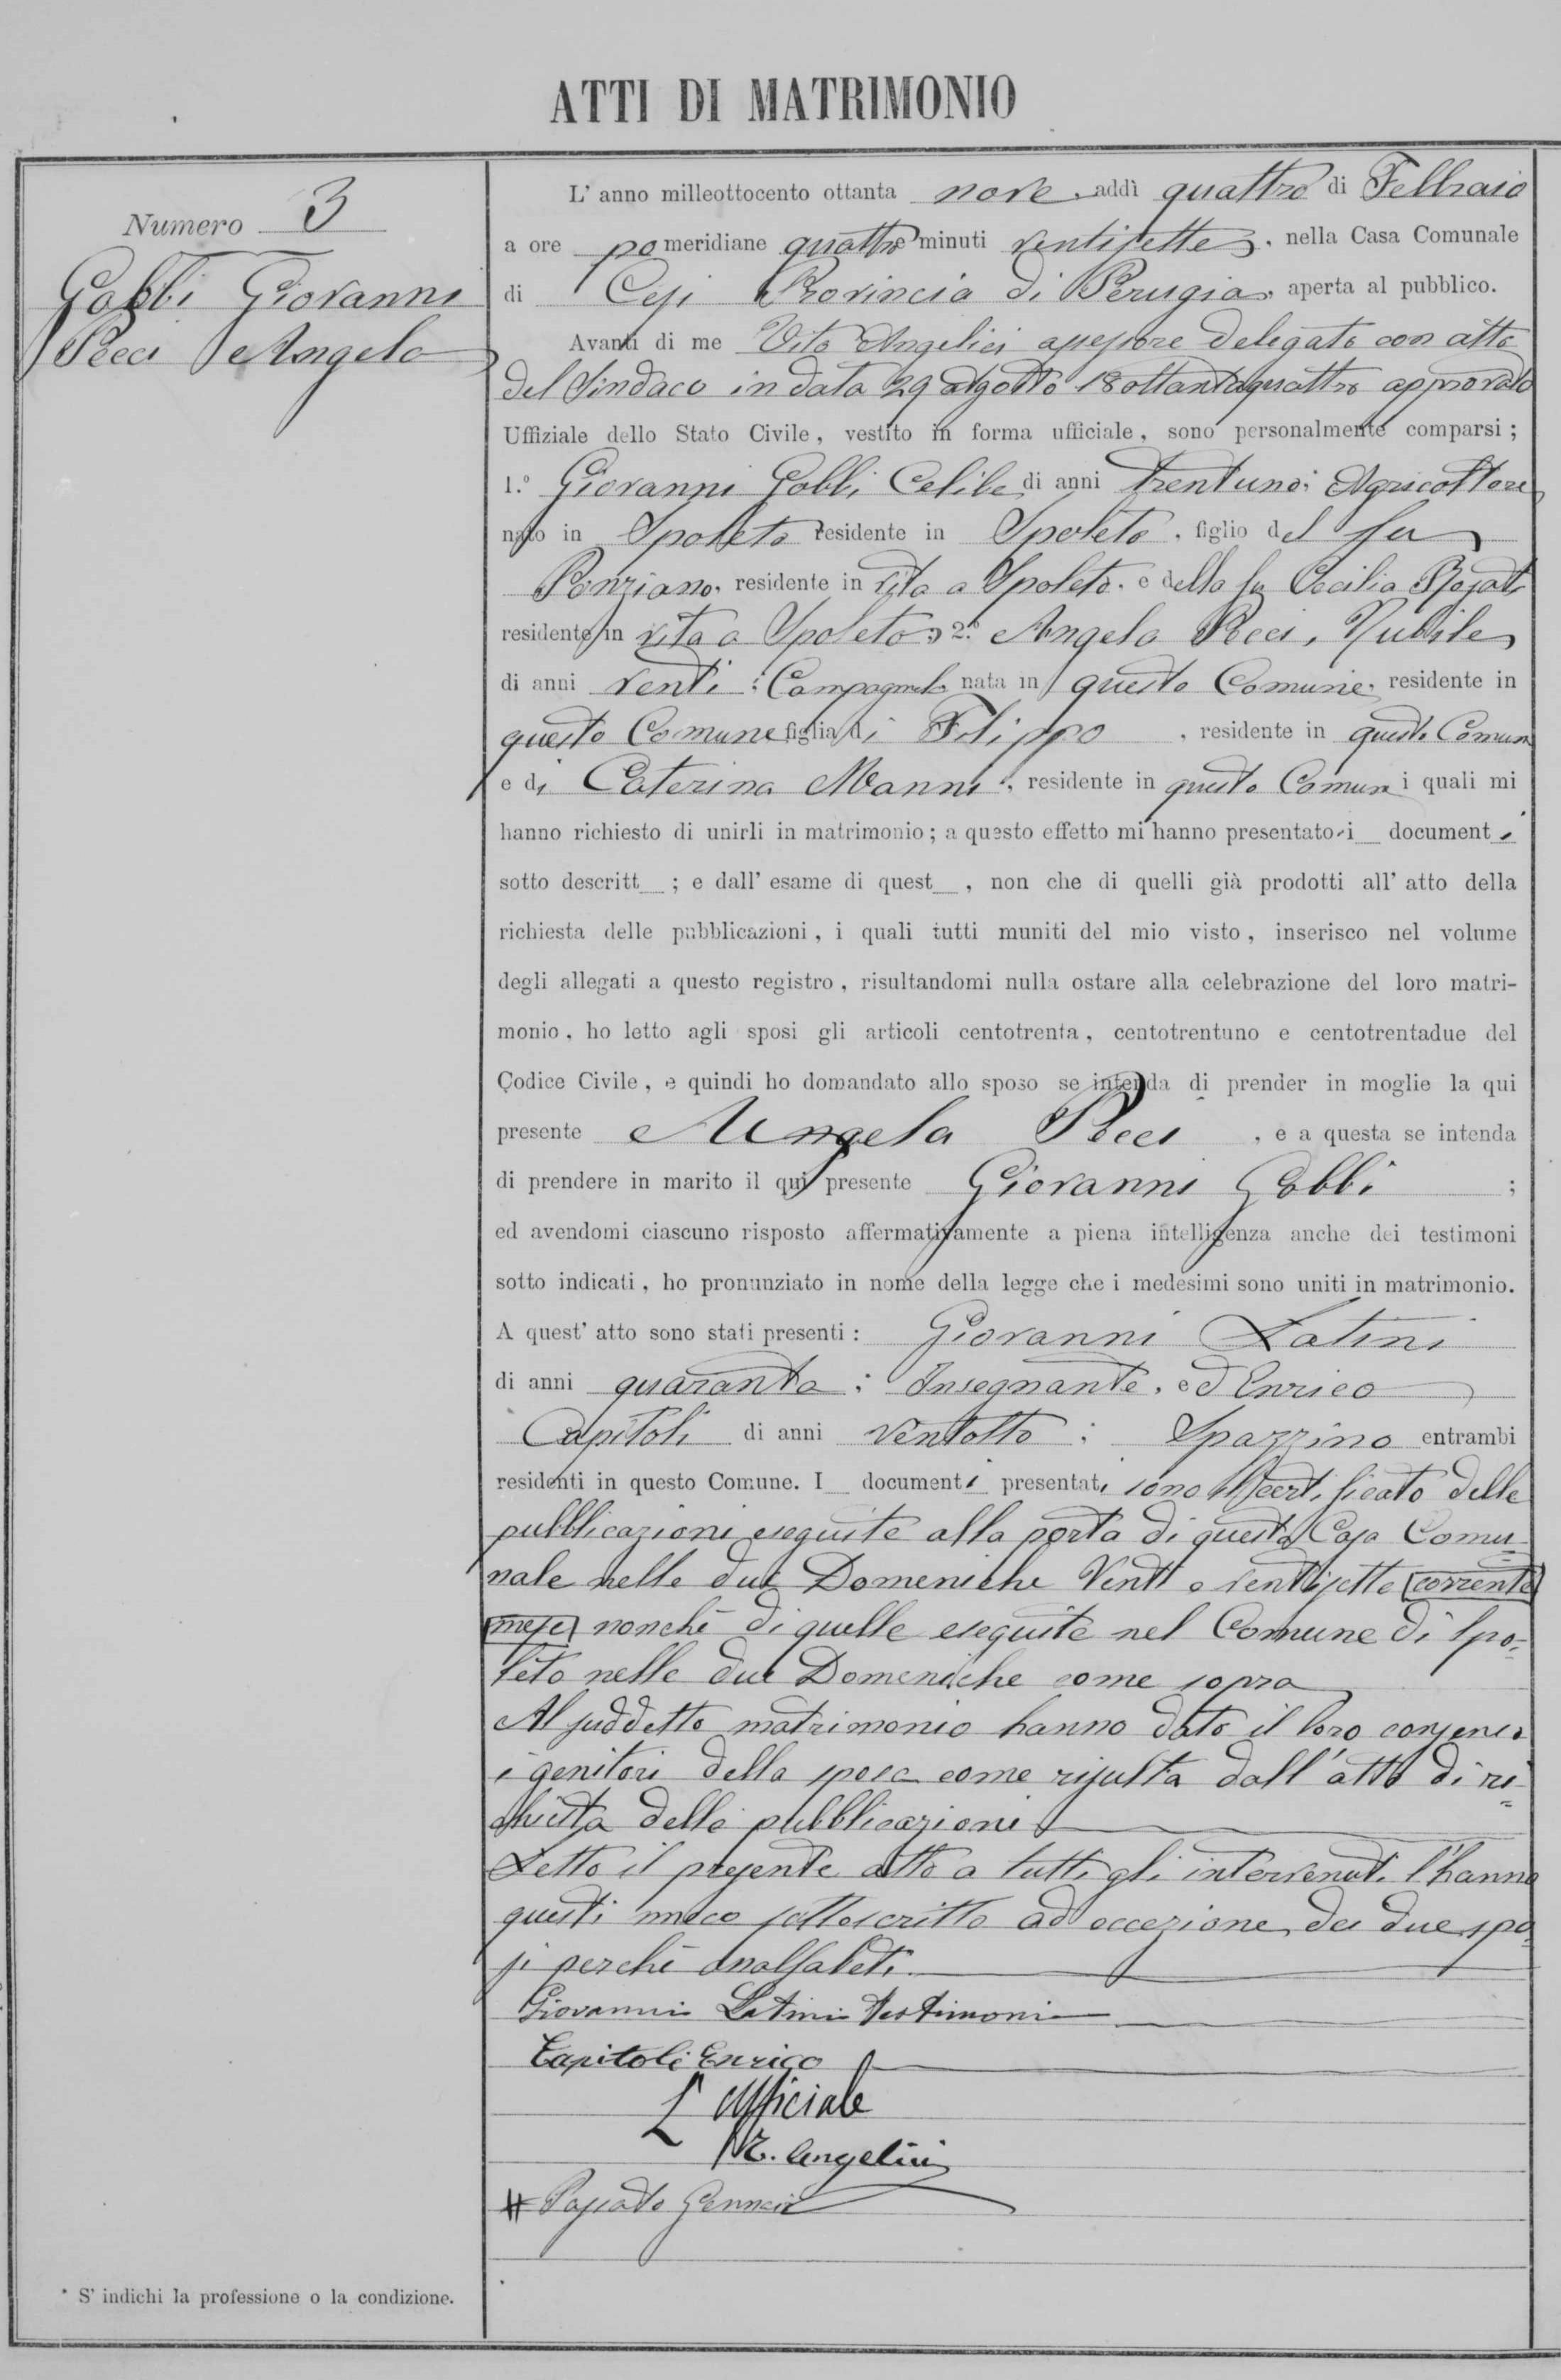 ATTI DI MATRIMONIO
Numero 3
Gobbi Giovanni
Pecci Angela
L' anno milleottocento ottanta nove, addì quattro di Febbraio
a ore pomeridiane quattro minuti ventisette, nella Casa Comunale
di Cesi Provincia di Perugia, aperta al pubblico.
Avanti di me Vito Angelici assessore delegato con atto
del Sindaco in data 29 Agosto 18ottantaquattro approvato
Uffiziale dello Stato Civile, vestito in forma ufficiale, sono personalmente comparsi;
1.° Giovanni Gobbi Celibe di anni trentuno; Agricoltore
nato in Spoleto residente in Spoleto, figlio del fu
Ponziano, residente in vita a Spoleto, e della fu Cecilia
residente in vita a Spoleto; 2.° Angela Pecci, Nubile
di anni venti; Campagnola nata in questo Comune, residente in
questo Comune figlia di Filippo, residente in questo Comune
e di Caterina Manni, residente in questo Comune i quali mi
hanno richiesto di unirli in matrimonio; a questo effetto mi hanno presentato i documenti
sotto descritt ; e dall' esame di quest , non che di quelli già prodotti all' atto della
richiesta delle pubblicazioni, i quali tutti muniti del mio visto, inserisco nel volume
degli allegati a questo registro, risultandomi nulla ostare alla celebrazione del loro matri-
monio, ho letto agli sposi gli articoli centotrenta, centotrentuno e centotrentadue del
Codice Civile, e quindi ho domandato allo sposo se intenda di prender in moglie la qui
presente Angela Pecci, e a questa se intenda
di prendere in marito il qui presente Giovanni Gobbi;
ed avendomi ciascuno risposto affermativamente a piena intelligenza anche dei testimoni
sotto indicati, ho pronunziato in nome della legge che i medesimi sono uniti in matrimonio.
A quest' atto sono stati presenti: Giovanni Latini
di anni quaranta; Insegnante, ed Enrico
Capitoli di anni ventotto; Spazzino entrambi
residenti in questo Comune. I documenti presentati sono il certificato delle
pubblicazioni eseguite alla porta di questa Casa Comu=
nale nelle due Domeniche Venti e ventisette corrente
mese nonchè di quelle eseguite nel Comune di Spo=
leto nelle due Domeniche come sopra
Al suddetto matrimonio hanno dato il loro consenso
i genitori della sposa come risulta dall'atto di ri=
chiesta delle pubblicazioni
Letto il presente atto a tutti gli intervenuti l'hanno
questi meco sottoscritto ad eccezione dei due spo=
si perchè analfabeti.
Giovanni Latini testimoni
Capitoli Enrico
L' Officiale
V. Angelici
# Passato Gennaio
* S' indichi la professione o la condizione.